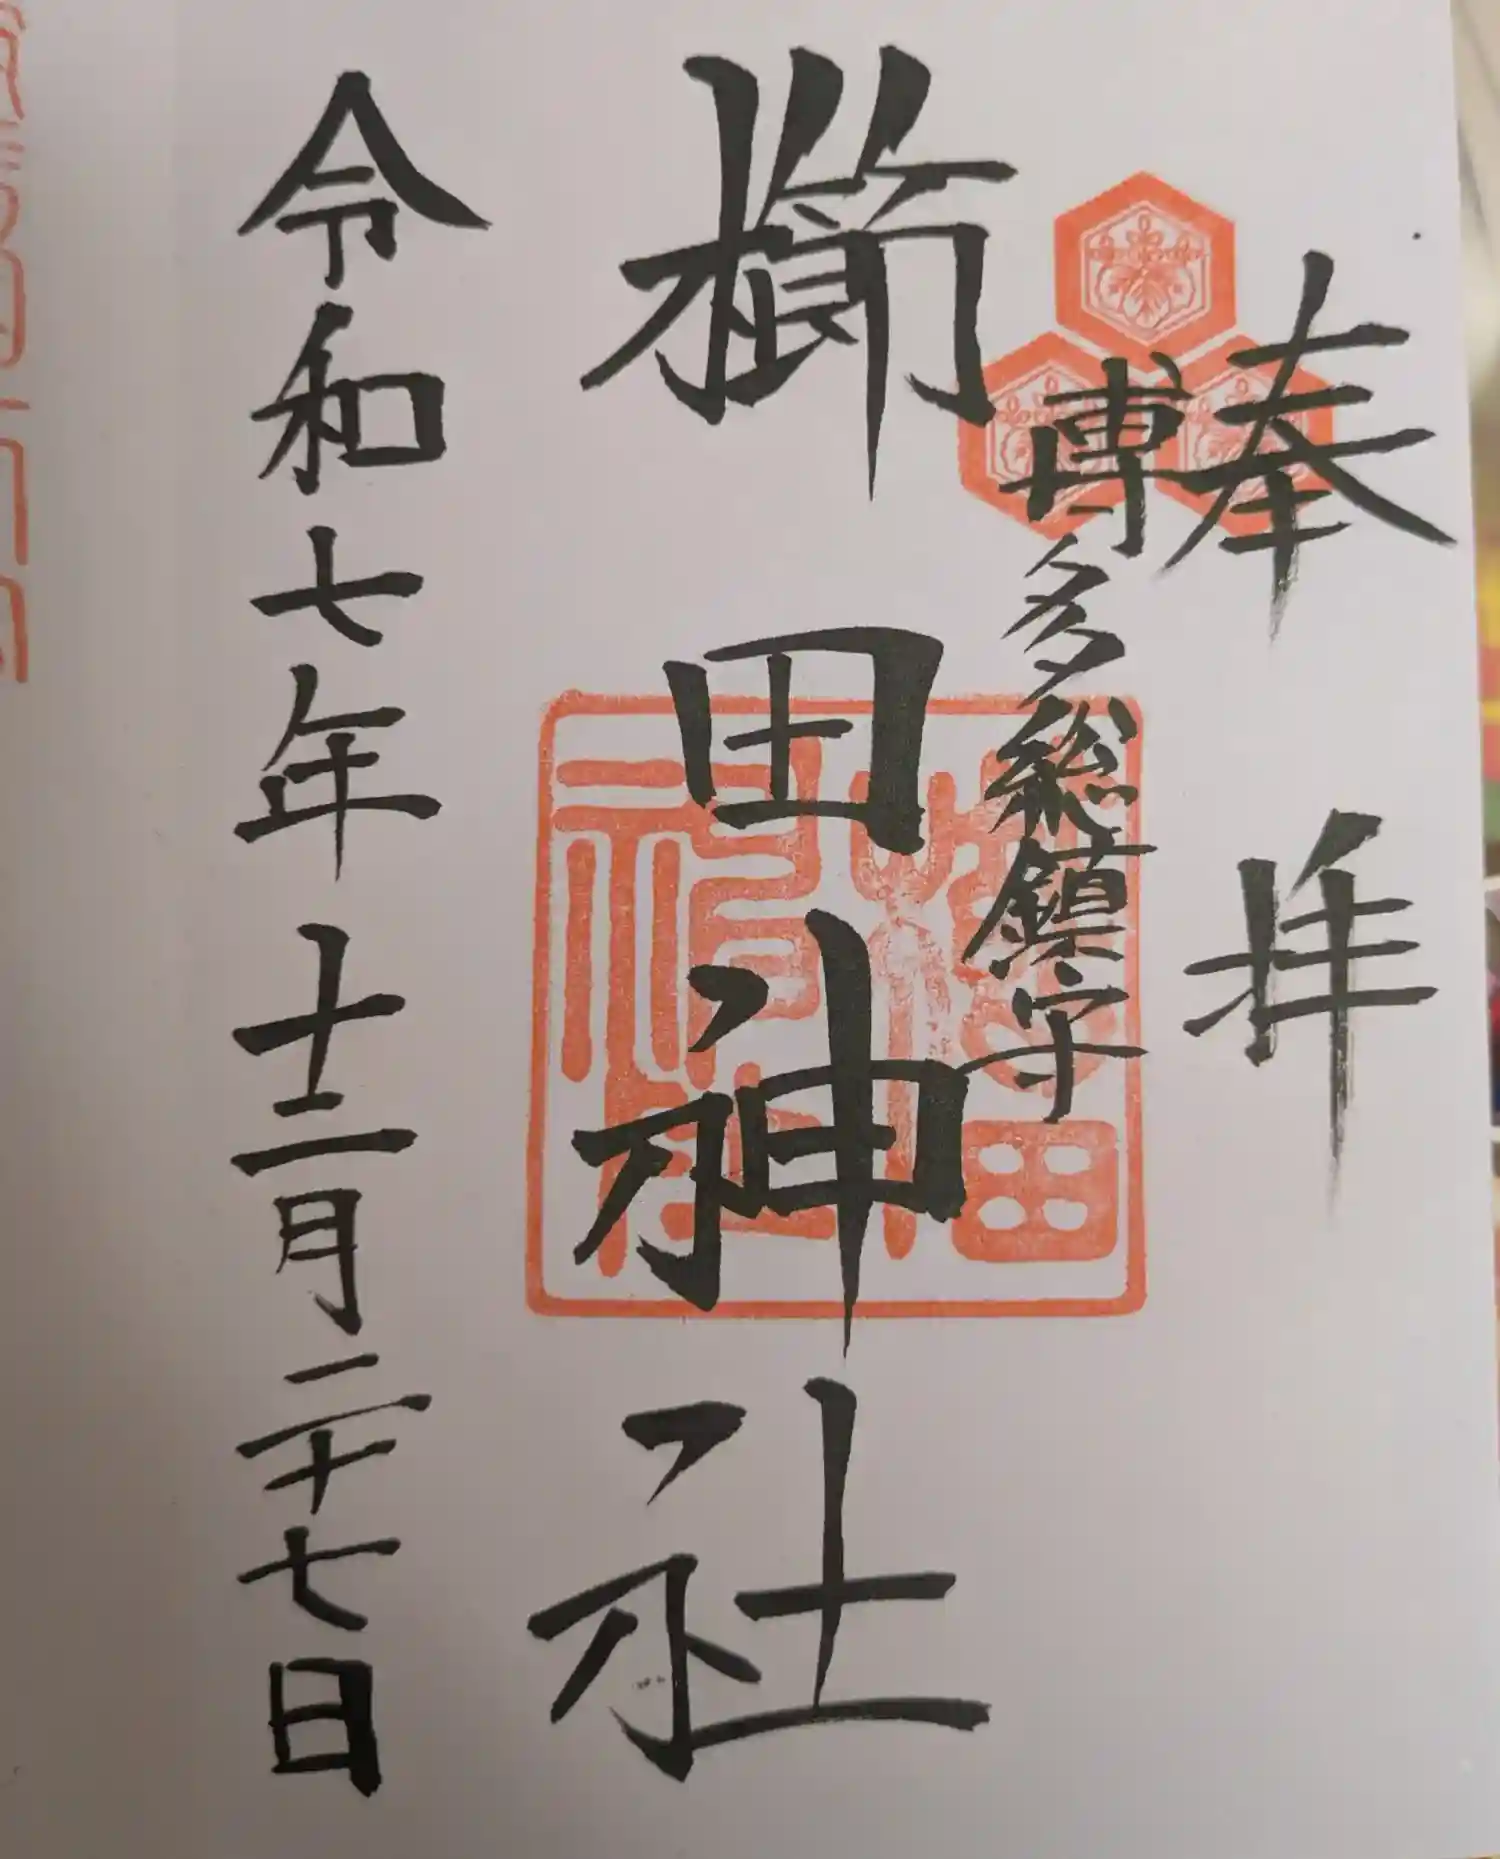 奉拝
博多総鎮守
櫛田神社
令和七年十二月二十七日
櫛田
神社